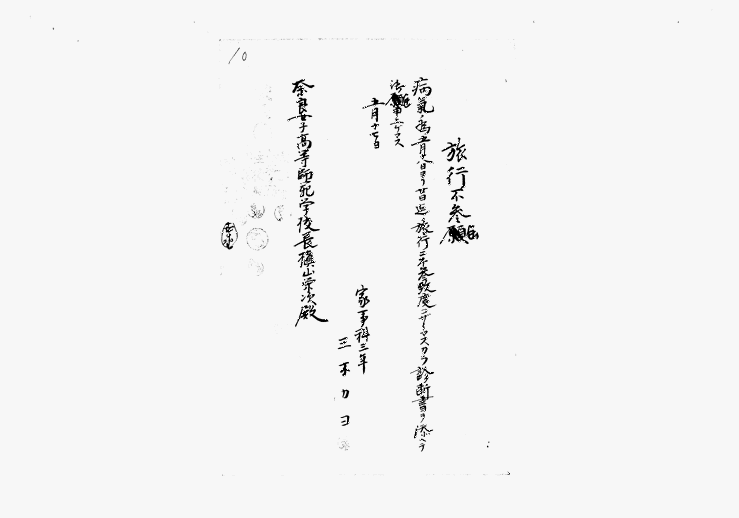 10
旅行不参願
病氣ノ為五月十八日ヨリ廿日迄旅行ニ不参致度ニザイマスカラ診断書ヲ添ヘテ
御願申上ゲマス
五月十七日
家事科三年
三木カヨ
奈良女子高等師範学校長槇山栄次殿